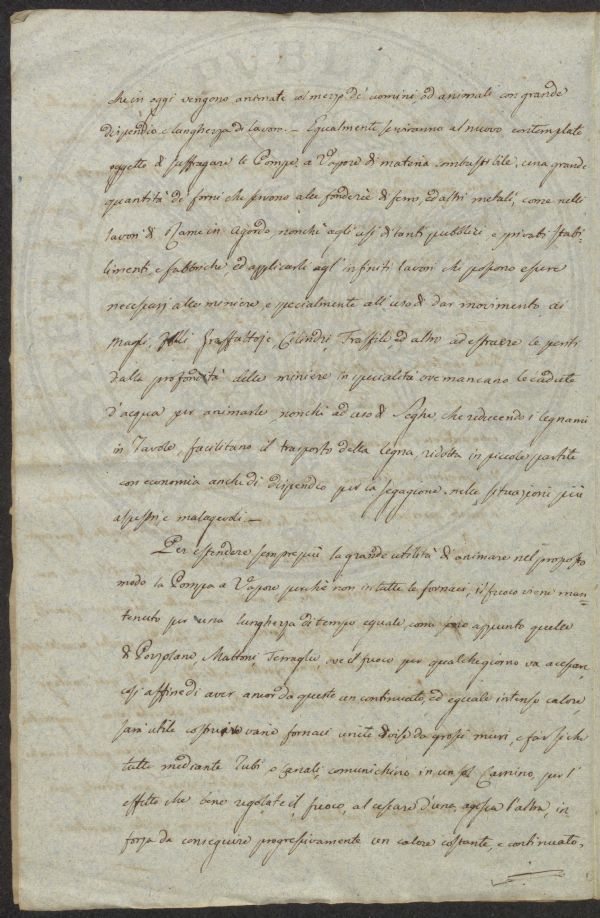 che in oggi vengono animate col mezzo de' uomini, od animali con grande
dispendio e lunghezza di lavoro. – Egualmente serviranno al nuovo contemplato
oggetto di suffragare le Pompe a Vapore di materia combustibile, una grande
quantità de forni che servono alle fonderie di ferro, ed altri metali, come nelli
lavori di Rame in Agordo, nonchè agli usi di tanti pubblici e privati stabi-
limenti, e fabbriche, ed applicarli agl' infiniti lavori che possono essere
necessarj alle miniere, e specialmente all' uso di dar movimento ai
Magli, Cilindri, Traffile ed altro ad estraere le
dalle profondità delle miniere in specialità ove mancano le cadute
d'acqua per animarle, nonchè ad uso di Seghe, che reducendo i legnami
in Tavole, facilitano il trasporto della legna, ridotta in piccole partite
con economia anche di dispendio per la segagione nelle situazioni più
alpestri e malagevoli –
Per estendere sempre più la grande utilità di animare nel proposto
modo la Pompa a Vapore perchè non in tutte le fornaci, il fuoco viene man-
tenuto per una lunghezza di tempo eguale, come sono appunto quelle
di Porzolane, Mattoni, Terraglie, ove il fuoco per qualche giorno va a cessare,
così affine di aver ancor da queste un continuato, ed eguale intenso calore,
sarà utile costruire varie fornaci unite divise da grossi muri, e far sì che
tutte mediante Tubi, o Canali comunichino in un sol Camino, per l'
effetto che bene regolate il fuoco, al cessare d'una, agisca l'altra, in
forza da conseguire progressivamente un calore costante, e continuato.